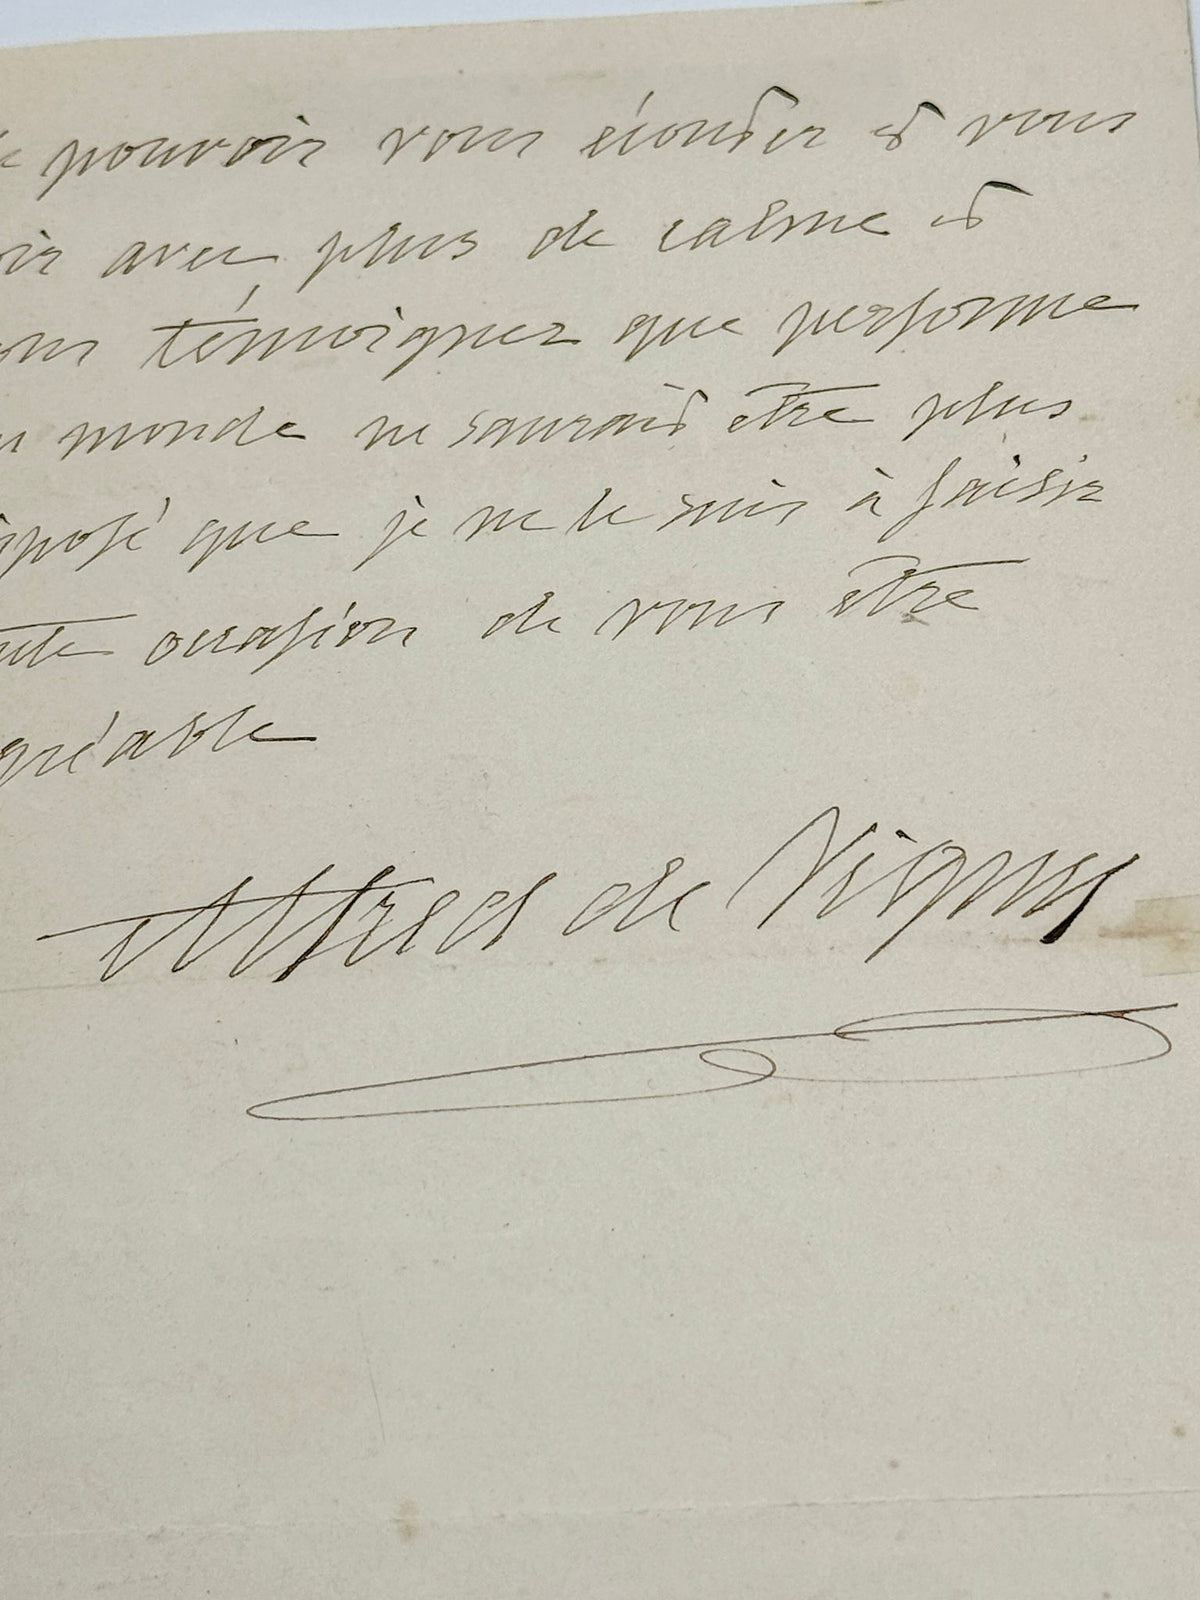 pouvoir vous écouter et vous
oir avec plus de calme et
ous témoigner que personne
u monde ne saurait être plus
sposé que je ne le suis à saisir
ute occasion de vous être
gréable
Alfred de Vigny